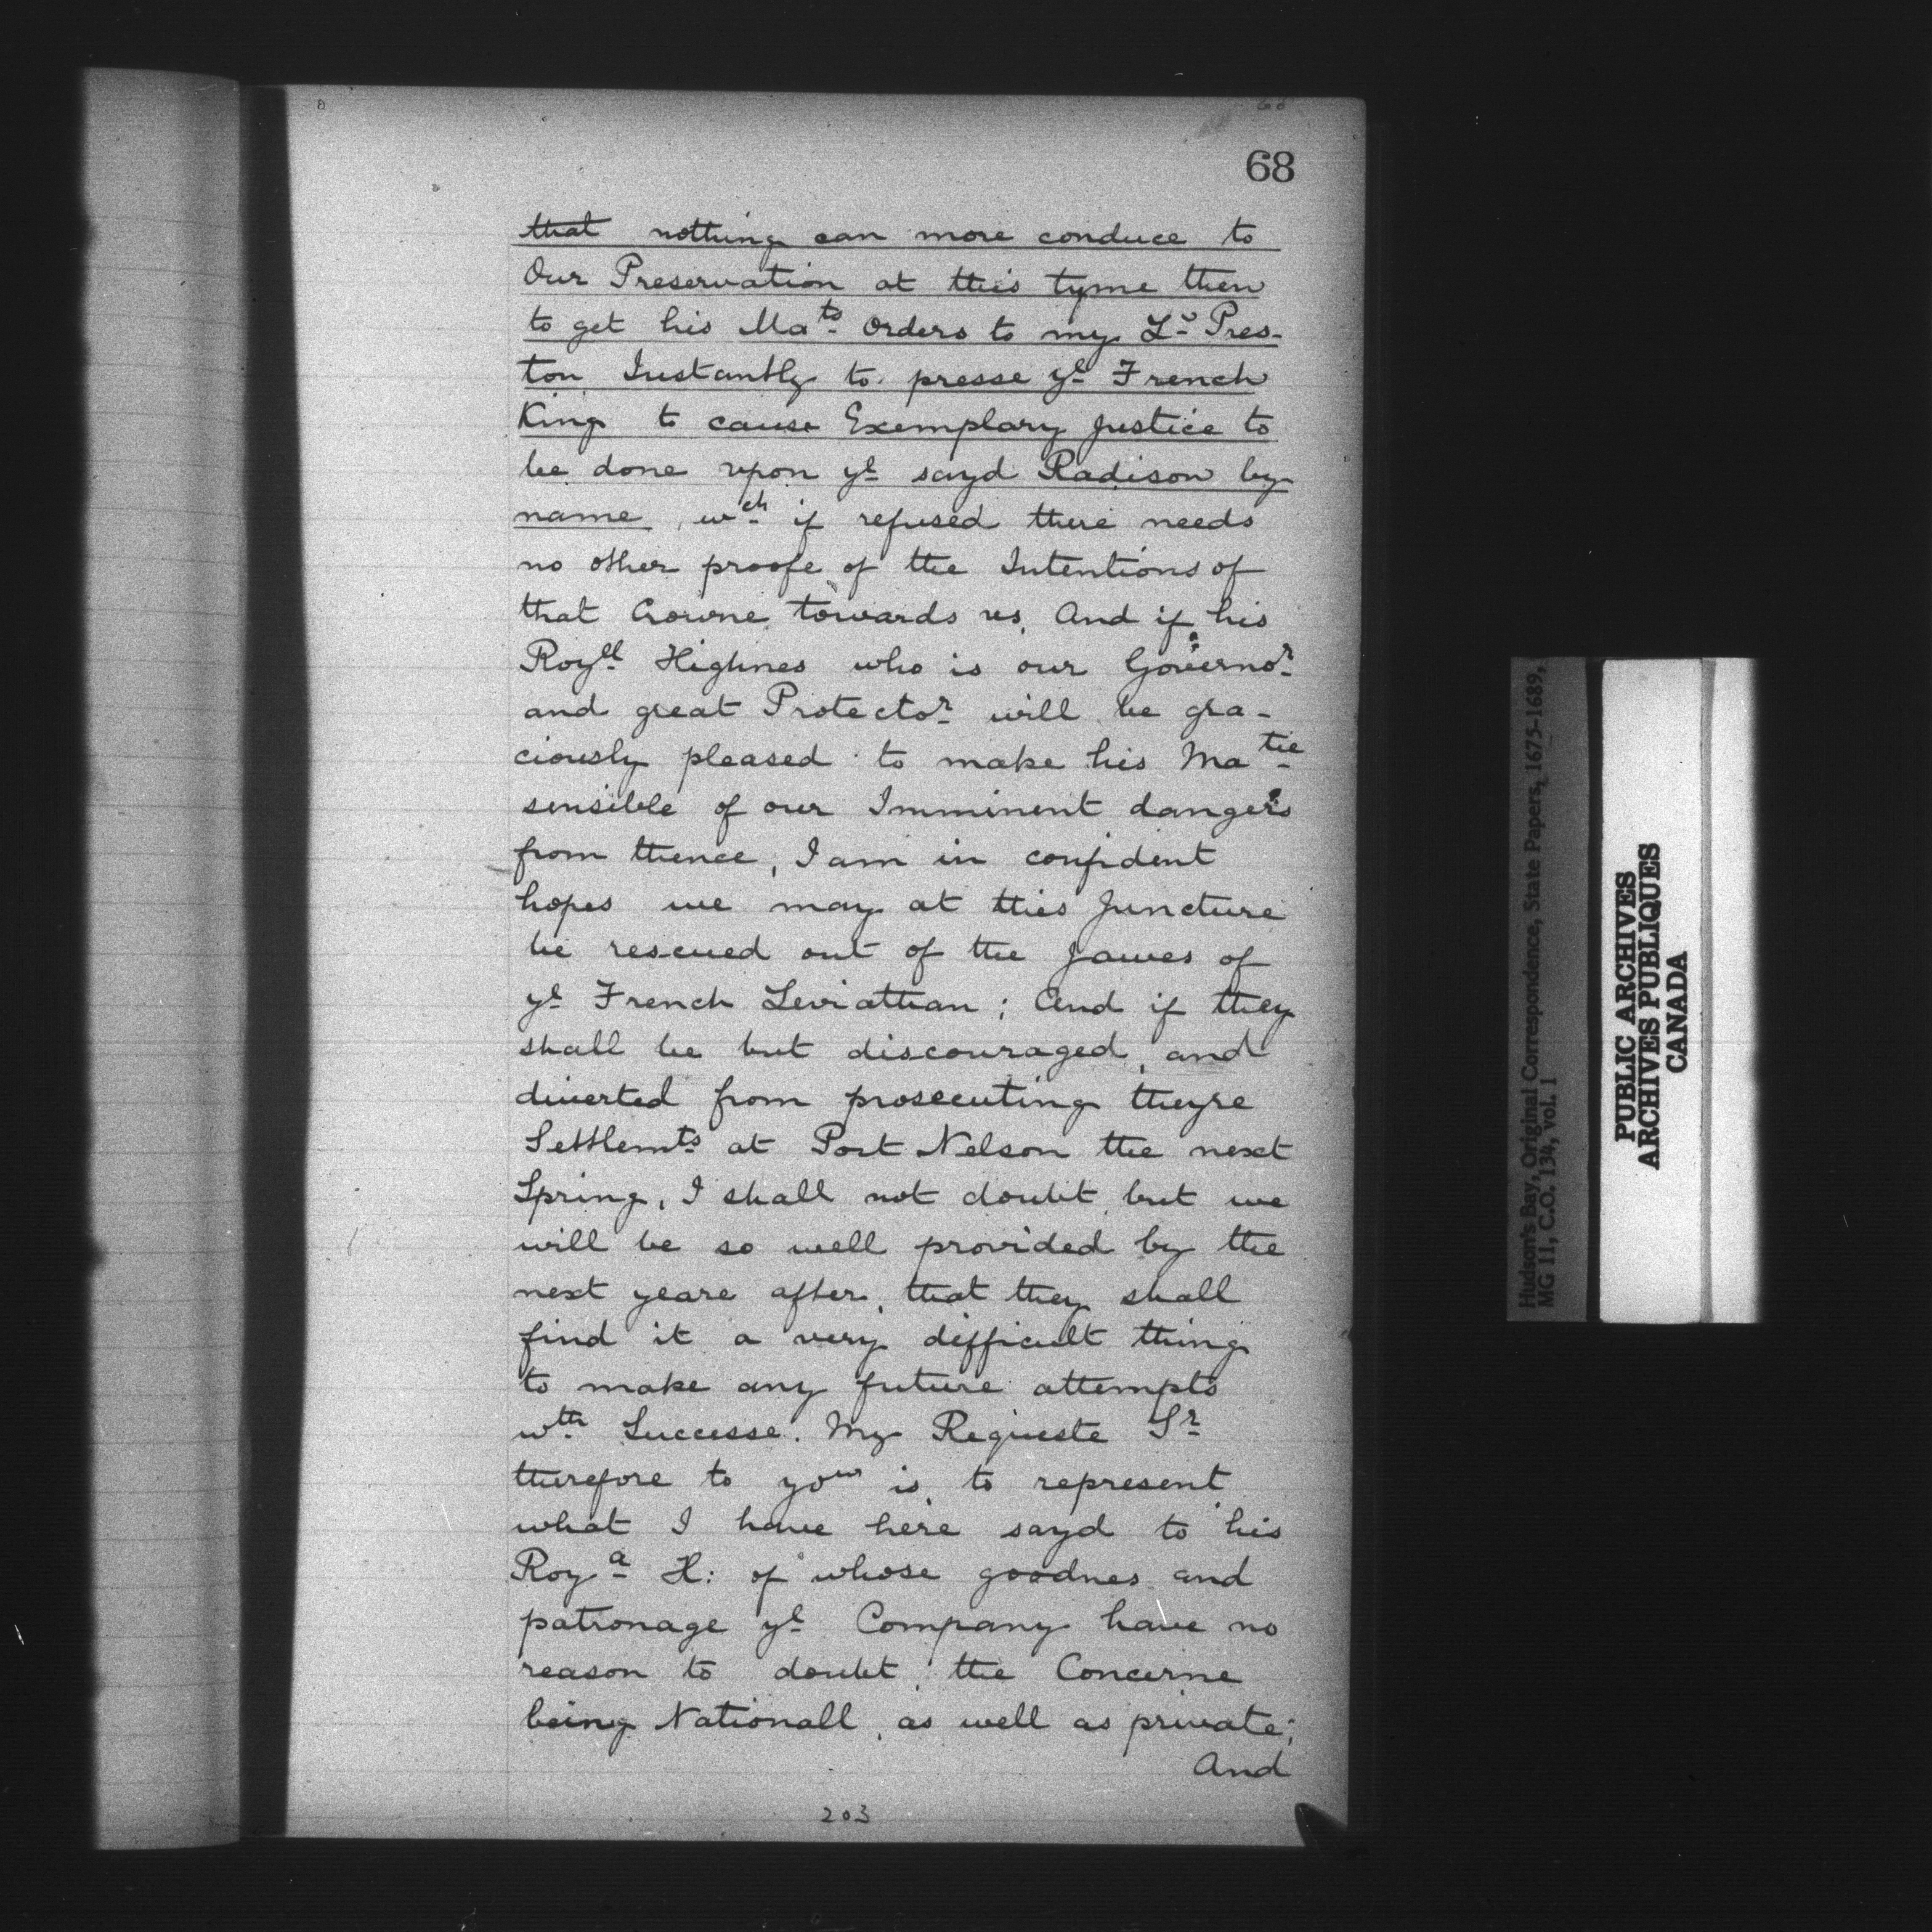 68
that nothing can more conduce to
Our Preservation at this tyme then
to get his Mats Orders to my Ld Pres-
ton Instantly to presse ye French
King to cause Exemplary Justice to
be done upon ye sayd Radison by
name, wch if refused there needs
no other proofe of the Intentions of
that Crowne towards us. And if his
Royll Highnes who is our Governor
and great Protector will be gra-
ciously pleased to make his Matie
sensible of our Imminent dangers
from thence, I am in confident
hopes we may at this Juncture
be rescued out of the Jawes of
ye French Leviathan; And if they
shall be but discouraged, and
diverted from prosecuting theyre
Settlemts at Port Nelson the next
Spring, I shall not doubt but we
will be so well provided by the
next yeare after, that they shall
find it a very difficult thing
to make any future attempts
wth Successe. My Requeste Sr
therefore to you is, to represent
what I have here sayd to his
Roya H: of whose goodnes and
patronage ye Company have no
reason to doubt, the Concerne
being Nationall, as well as private;
And
203
Hudson's Bay, Original Correspondence, State Papers, 1675-1689,
MG 11, C.O. 134, vol. 1
PUBLIC ARCHIVES
ARCHIVES PUBLIQUES
CANADA